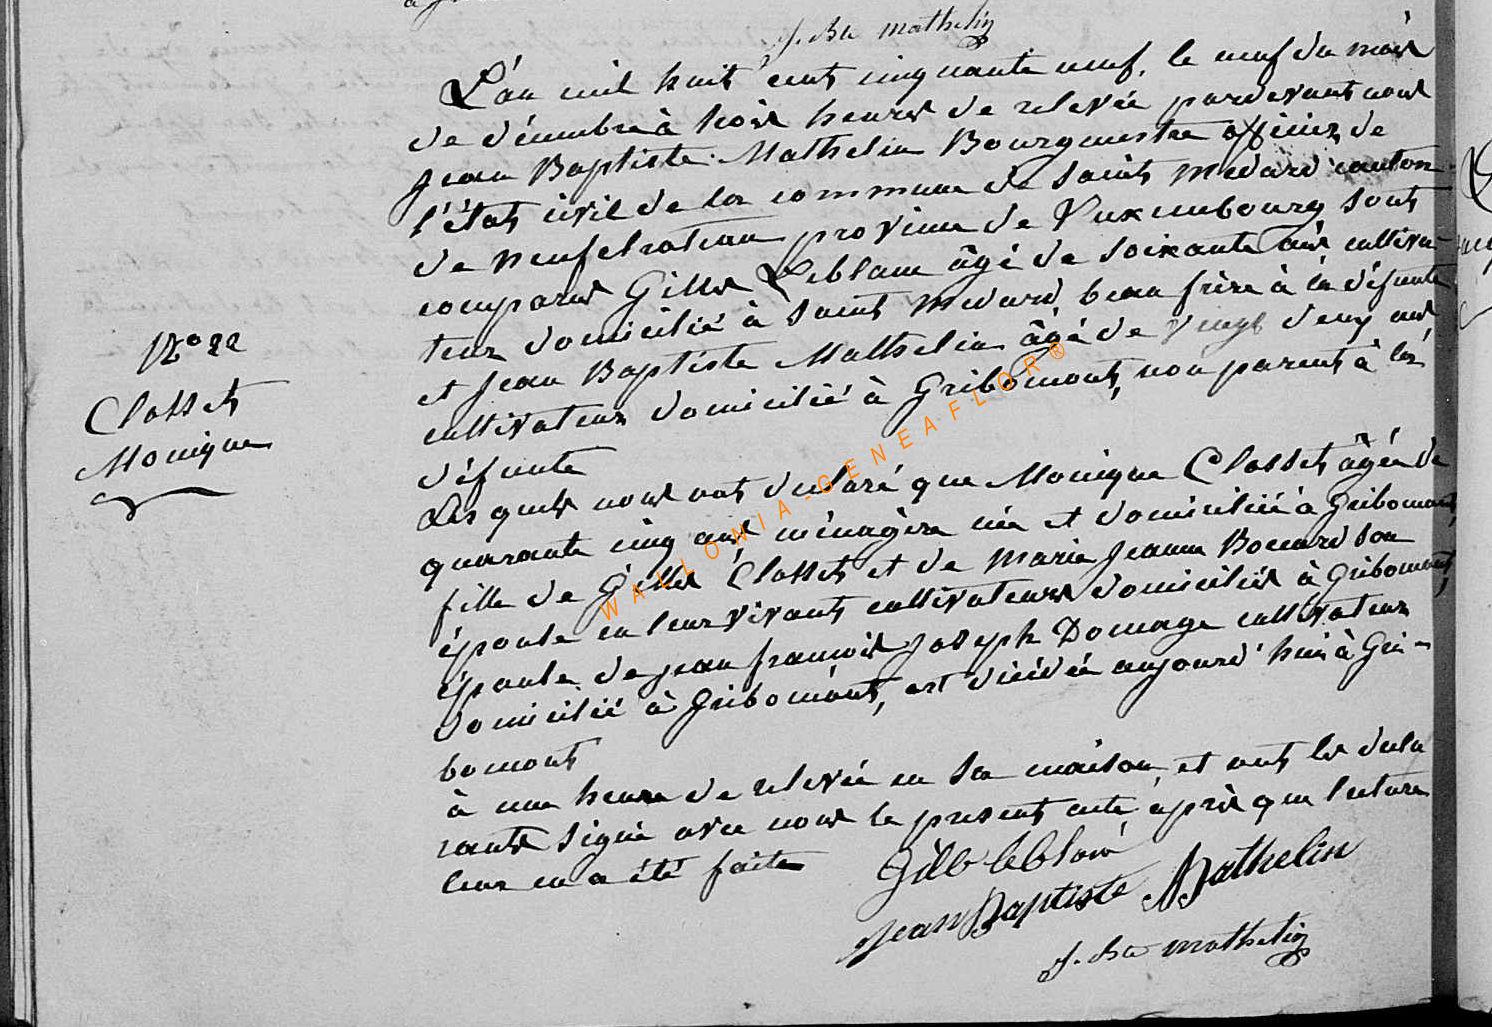 J. Bte Mathelin
L'an mil huit cent cinquante neuf, le neuf du mois
de décembre à trois heures de relevée pardevant nous
Jean Baptiste Mathelin Bourgmestre officier de
l'état civil de la commune de Saint Médard canton
de neufchateau province de Luxembourg sont
comparus Gilles Leblanc âgé de soixante ans cultiva-
teur domicilié à Saint Médard, beau frère à la défunte
et Jean Baptiste Mathelin âgé de vingt deux ans
cultivateur domicilié à Gribomont, non parent à la
défunte
Les quels nous ont déclaré que Monique Closset âgée de
quarante cinq ans ménagère née et domiciliée à Gribomont,
fille de Gilles Closset et de Marie Jeanne Bocard son
épouse en leur vivant cultivateurs domiciliés à Gribomont,
épouse de jean françois Joseph Domage cultivateur
domicilié à Gribomont, est décédée aujourd'hui à Gri-
bomont
à une heure de relevée en sa maison, et ont les décla
rants signé avec nous le present acte après que lecture
leur en a été faite
Gille leblanc
Jean Baptiste Mathelin
J. Bte Mathelin
N° 22
Closset
Monique
WALLONIA-GENEAFLOR®